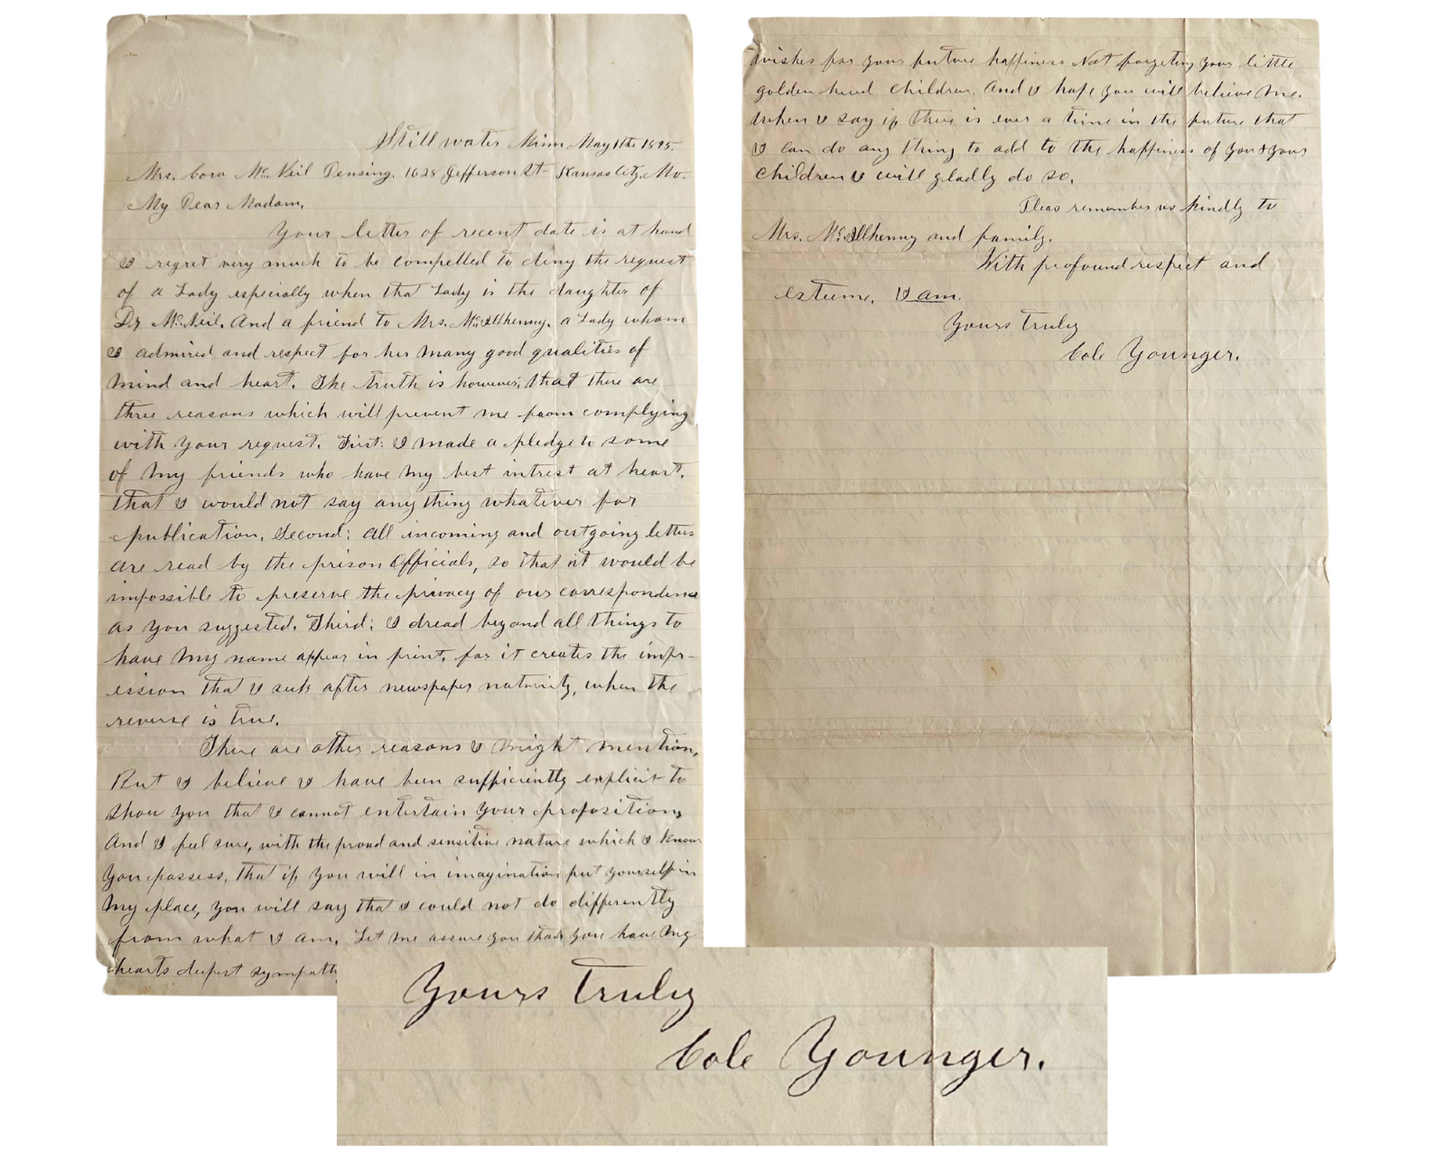 Still water Minn May 11th 1895.
Mrs. Cora McNeil Deusing. 1628 Jefferson St Kansas City, Mo.
My Dear Madam,
Your letter of recent date is at hand
I regret very much to be compelled to deny the request
of a Lady especially when that Lady is the daughter of
Dr McNeil. And a friend to Mrs. McIllhenny. a Lady whom
I admired and respect for her many good qualities of
mind and heart. The truth is however, that there are
three reasons which will prevent me from complying
with your request. First: I made a pledge to some
of my friends who have my best intrest at heart.
that I would not say any thing whatever for
publication. Second: All incoming and outgoing letters
are read by the prison Officials, so that it would be
impossible to preserve the privacy of our correspondence
as you suggested. Third: I dread beyond all things to
have my name appear in print. for it creates the impr-
ession that I seek after newspaper notority, when the
reverse is true.
There are other reasons I might mention.
But I believe I have been sufficiently explicit to
show you that I cannot entertain your proposition,
And I feel sure, with the proud and sensitive nature which I know
you possess, that if you will in imagination put yourself in
my place, you will say that I could not do differently
from what I am. Let me assure you that you have my
hearts deepest sympath
wishes for your future happiness Not forgeting your little
golden haired children. And I hope you will believe me.
When I say if there is ever a time in the future that
I can do any thing to add to the happiness of you & your
children I will gladly do so.
Pleas remember us kindly to
Mrs. McIllhenny and family.
With profound respect and
esteeme. I am.
Yours truly
Cole Younger.
Yours truly
Cole Younger.